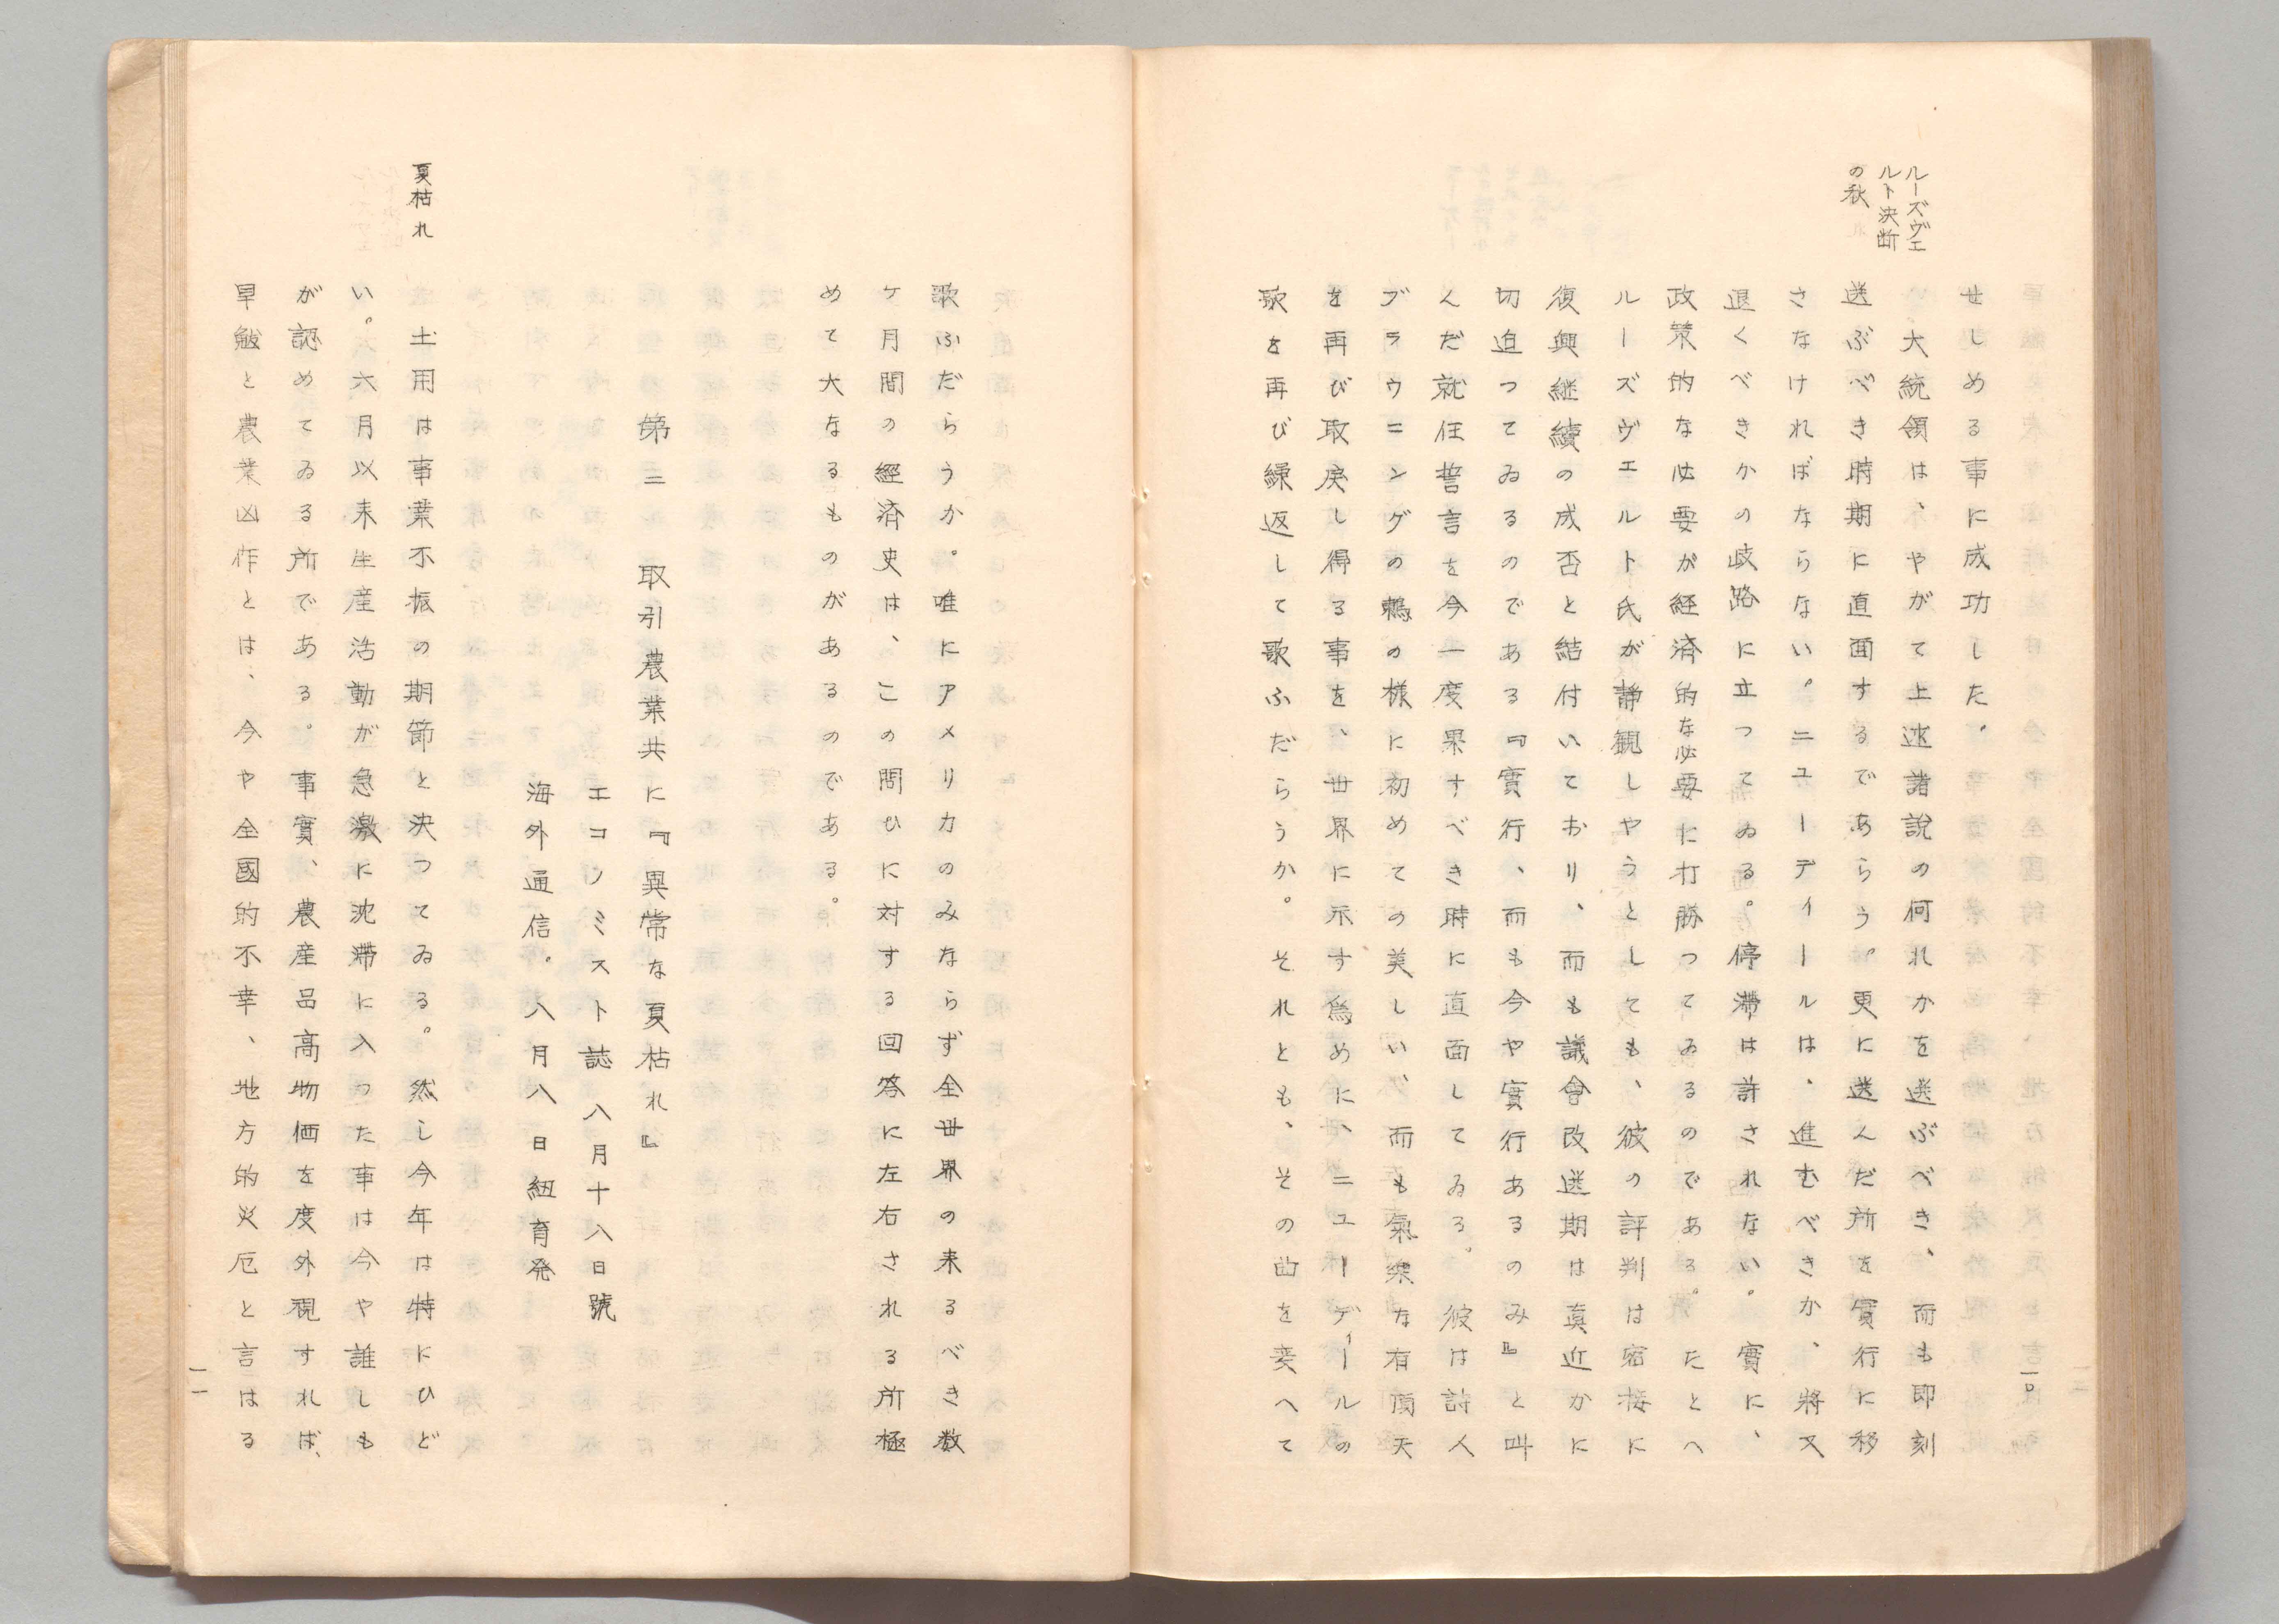 ルーズヴェ
ルト決断
の秋
せしめる事に成功した。
大統領は、やがて上述諸説の何れかを選ぶべき、而も即刻
選ぶべき時期に直面するであらう。更に選んだ所を實行に移
さなければならない。ニューディールは、進むべきか、將又
退くべきかの岐路に立つてゐる。停滯は許されない。實に、
政策的な必要が経済的な必要に打勝つてゐるのである。たとへ
ルーズヴエルト氏が静観しやうとしても、彼の評判は密接に
復興継續の成否と結付いており、而も議會改選期は真近かに
切迫つてゐるのである『實行、而も今や實行あるのみ』と叫
んだ就任誓言を今一度果すべき時に直面してゐる。彼は詩人
ブラウニングの鶫の様に初めての美しい、而も氣樂な有頂天
を再び取戻し得る事を、世界に示す為めに、ニューディールの
歌を再び繰返して歌ふだらうか。それとも、その曲を変へて
一〇
歌ふだらうか。唯にアメリカのみならず全世界の来るべき数
ケ月間の經済史は、この問ひに対する回答に左右される所極
めて大なるものがあるのである。
第三 取引農業共に『異常な夏枯れ』
エコノミスト誌 八月十八日號
海外通信。八月八日紐育発
夏枯れ
土用は事業不振の期節と決つてゐる。然し今年は特にひど
い。六月以来生産活動が急激に沈滞に入つた事は今や誰しも
が認めてゐる所である。事實、農産品高物価を度外視すれば、
旱魃と農業凶作とは、今や全國的不幸、地方的災厄と言はる
一一